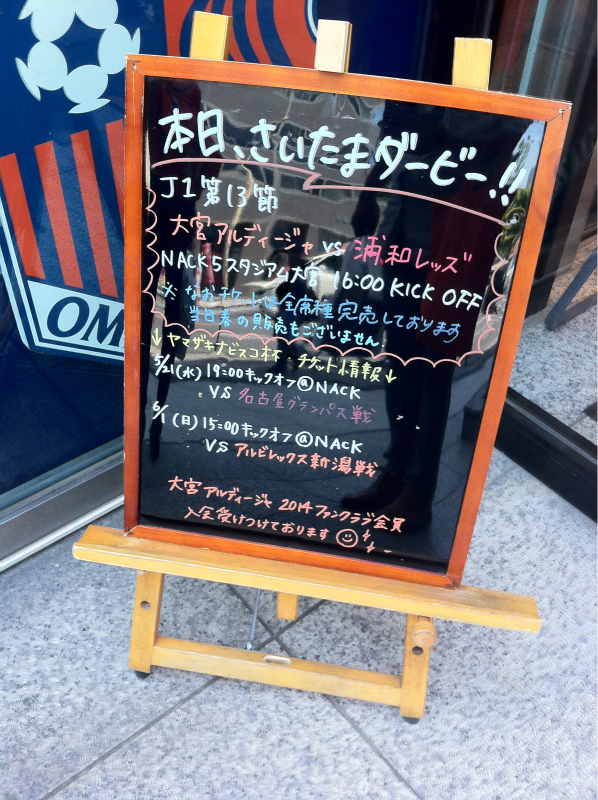 本日、さいたまダービー!!
J1第13節
大宮アルディージャ vs 浦和レッズ
NACK5スタジアム大宮 16:00 KICK OFF
※なおチケットは全席種完売しております
当日券の販売もございません。
↓ヤマザキナビスコ杯・チケット情報↓
5/21(水) 19:00キックオフ@NACK
VS 名古屋グランパス戦
6/1(日) 15:00キックオフ@NACK
VS アルビレックス新潟戦
大宮アルディージャ 2014ファンクラブ会員
入会受けつけております
OM